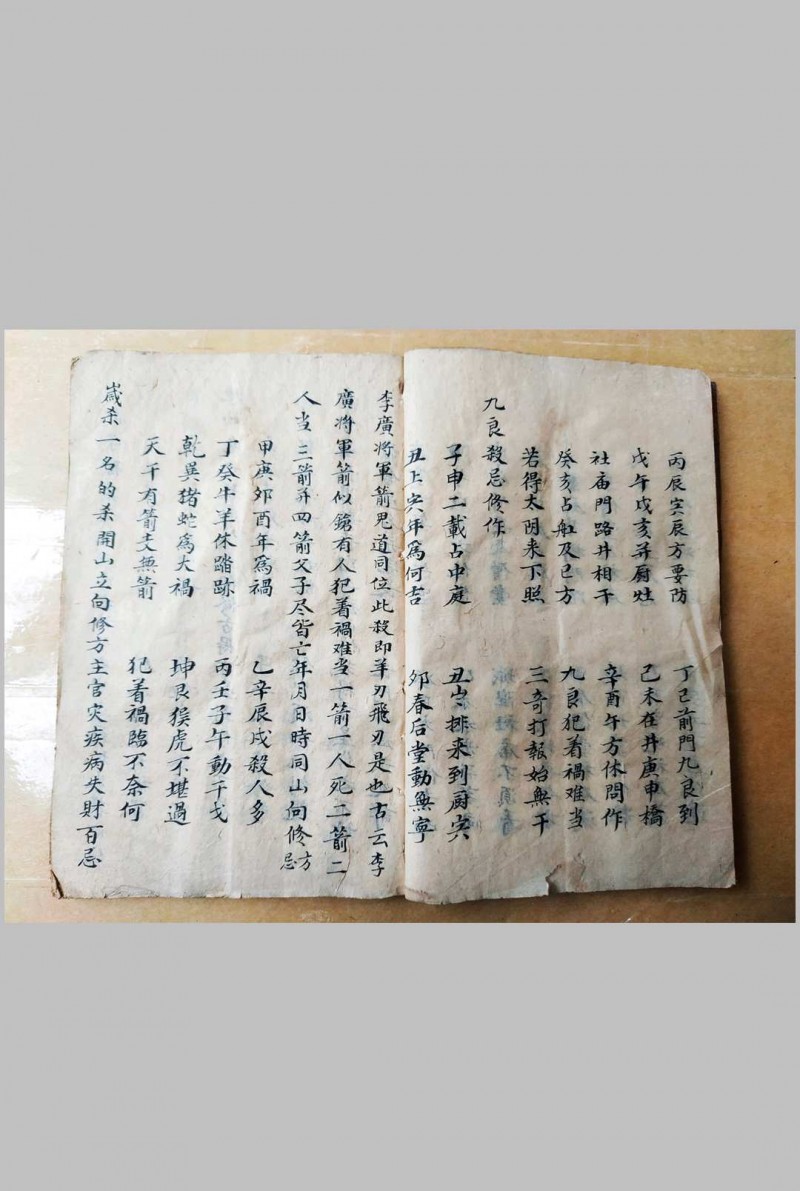 丙辰寅辰方要防 丁己前門九良到
戊午戌亥并厨灶 己未在井庚申橋
社庙門路井相干 辛酉午方休問作
癸亥占船及巳方 九良犯着禍难当
若得太阴来下照 三奇打報始無干
九良殺忌修作
子申二載占中庭 丑 排来到厨
丑上 年爲何吉 卯春后堂動無寧
李廣將軍箭鬼道同位此殺即羊刃飛刃是也古云李
廣將軍箭似鎗有人犯着禍难当一箭一人死二箭二
人当三箭并四箭父子尽皆亡年月日時同山向修方忌
甲庚卯酉年爲禍 乙辛辰戌殺人多
丁癸牛羊休踏跡 丙壬子午動干戈
乾巽猪蛇爲大禍 坤艮猴虎不堪過
天干有箭支無箭 犯着禍臨不奈何
嵗杀一名的杀開山立向修方主官灾疾病失財百忌